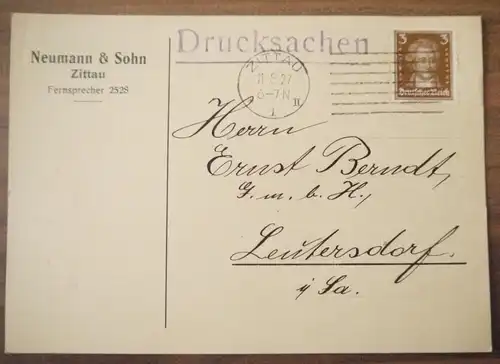 Neumann & Sohn
Zittau
Fernsprecher 2528
Drucksachen
ZITTAU
6-7N
1 II
3 3
Deutsches Reich
Herrn
Ernst Berndt,
G. m. b. H.,
Leutersdorf.
i/Sa.